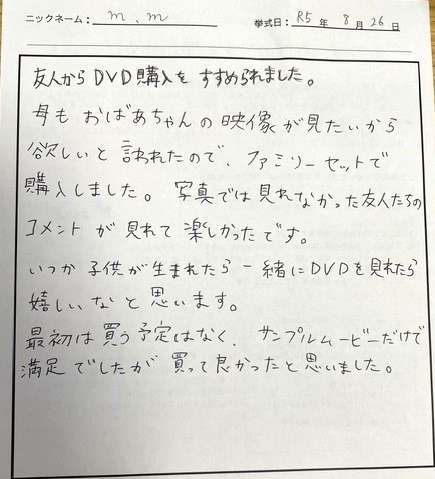 ニックネーム： m.m 挙式日： R5 年 8 月 26 日
友人からDVD購入をすすめられました。
母もおばあちゃんの映像が見たいから
欲しいと言われたので、ファミリーセットで
購入しました。写真では見れなかった友人たちの
コメントが見れて楽しかったです。
いつか子供が生まれたら一緒にDVDを見れたら
嬉しいなと思います。
最初は買う予定はなく、サンプルムービーだけで
満足でしたが買って良かったと思いました。